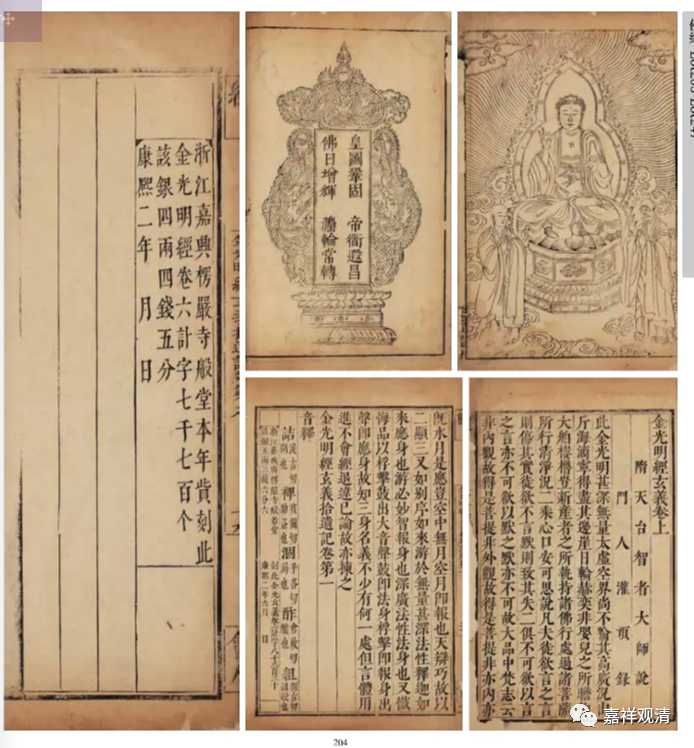 浙江嘉興楞嚴寺般堂本年貲刻此
金光明經卷六計字七千七百个
該銀四兩四錢五分
康熙二年 月 日
皇圖鞏固 帝道遐昌
佛日增輝 灋輪常轉
既水月是應豈空中無月空月即報也天辯巧故以
二顯三又如别序如來游於無量甚深法性釋迦如
來應身也游必妙智報身也深廣法性法身也又懺
悔品以桴擊鼓出大音聲鼓即法身桴擊即報身出
聲即應身故知三身名義不少有何一處但言體用
進不會經退違己論故亦揀之
金光明經玄義拾遺記卷第一
音釋
金光明經玄義卷上
隋天台智者大師說
門人灌頂錄
此金光明甚深無量太虛空界尚不喻其高廣況山
斤海滴寧得盡其邊崖日輪赫奕非嬰兒之所瞻
大舶樓櫓豈新産者之所執持諸佛行處過諸菩薩
所行清淨況二乘心口安可思說凡夫徒欲言之言
則傷其實徒欲不言默則致其失二俱不可欲以言
之言亦不可欲以默之默亦不可故大品中梵志云
非內觀故得是菩提非外觀故得是菩提非亦內亦
204
嘉祥观清